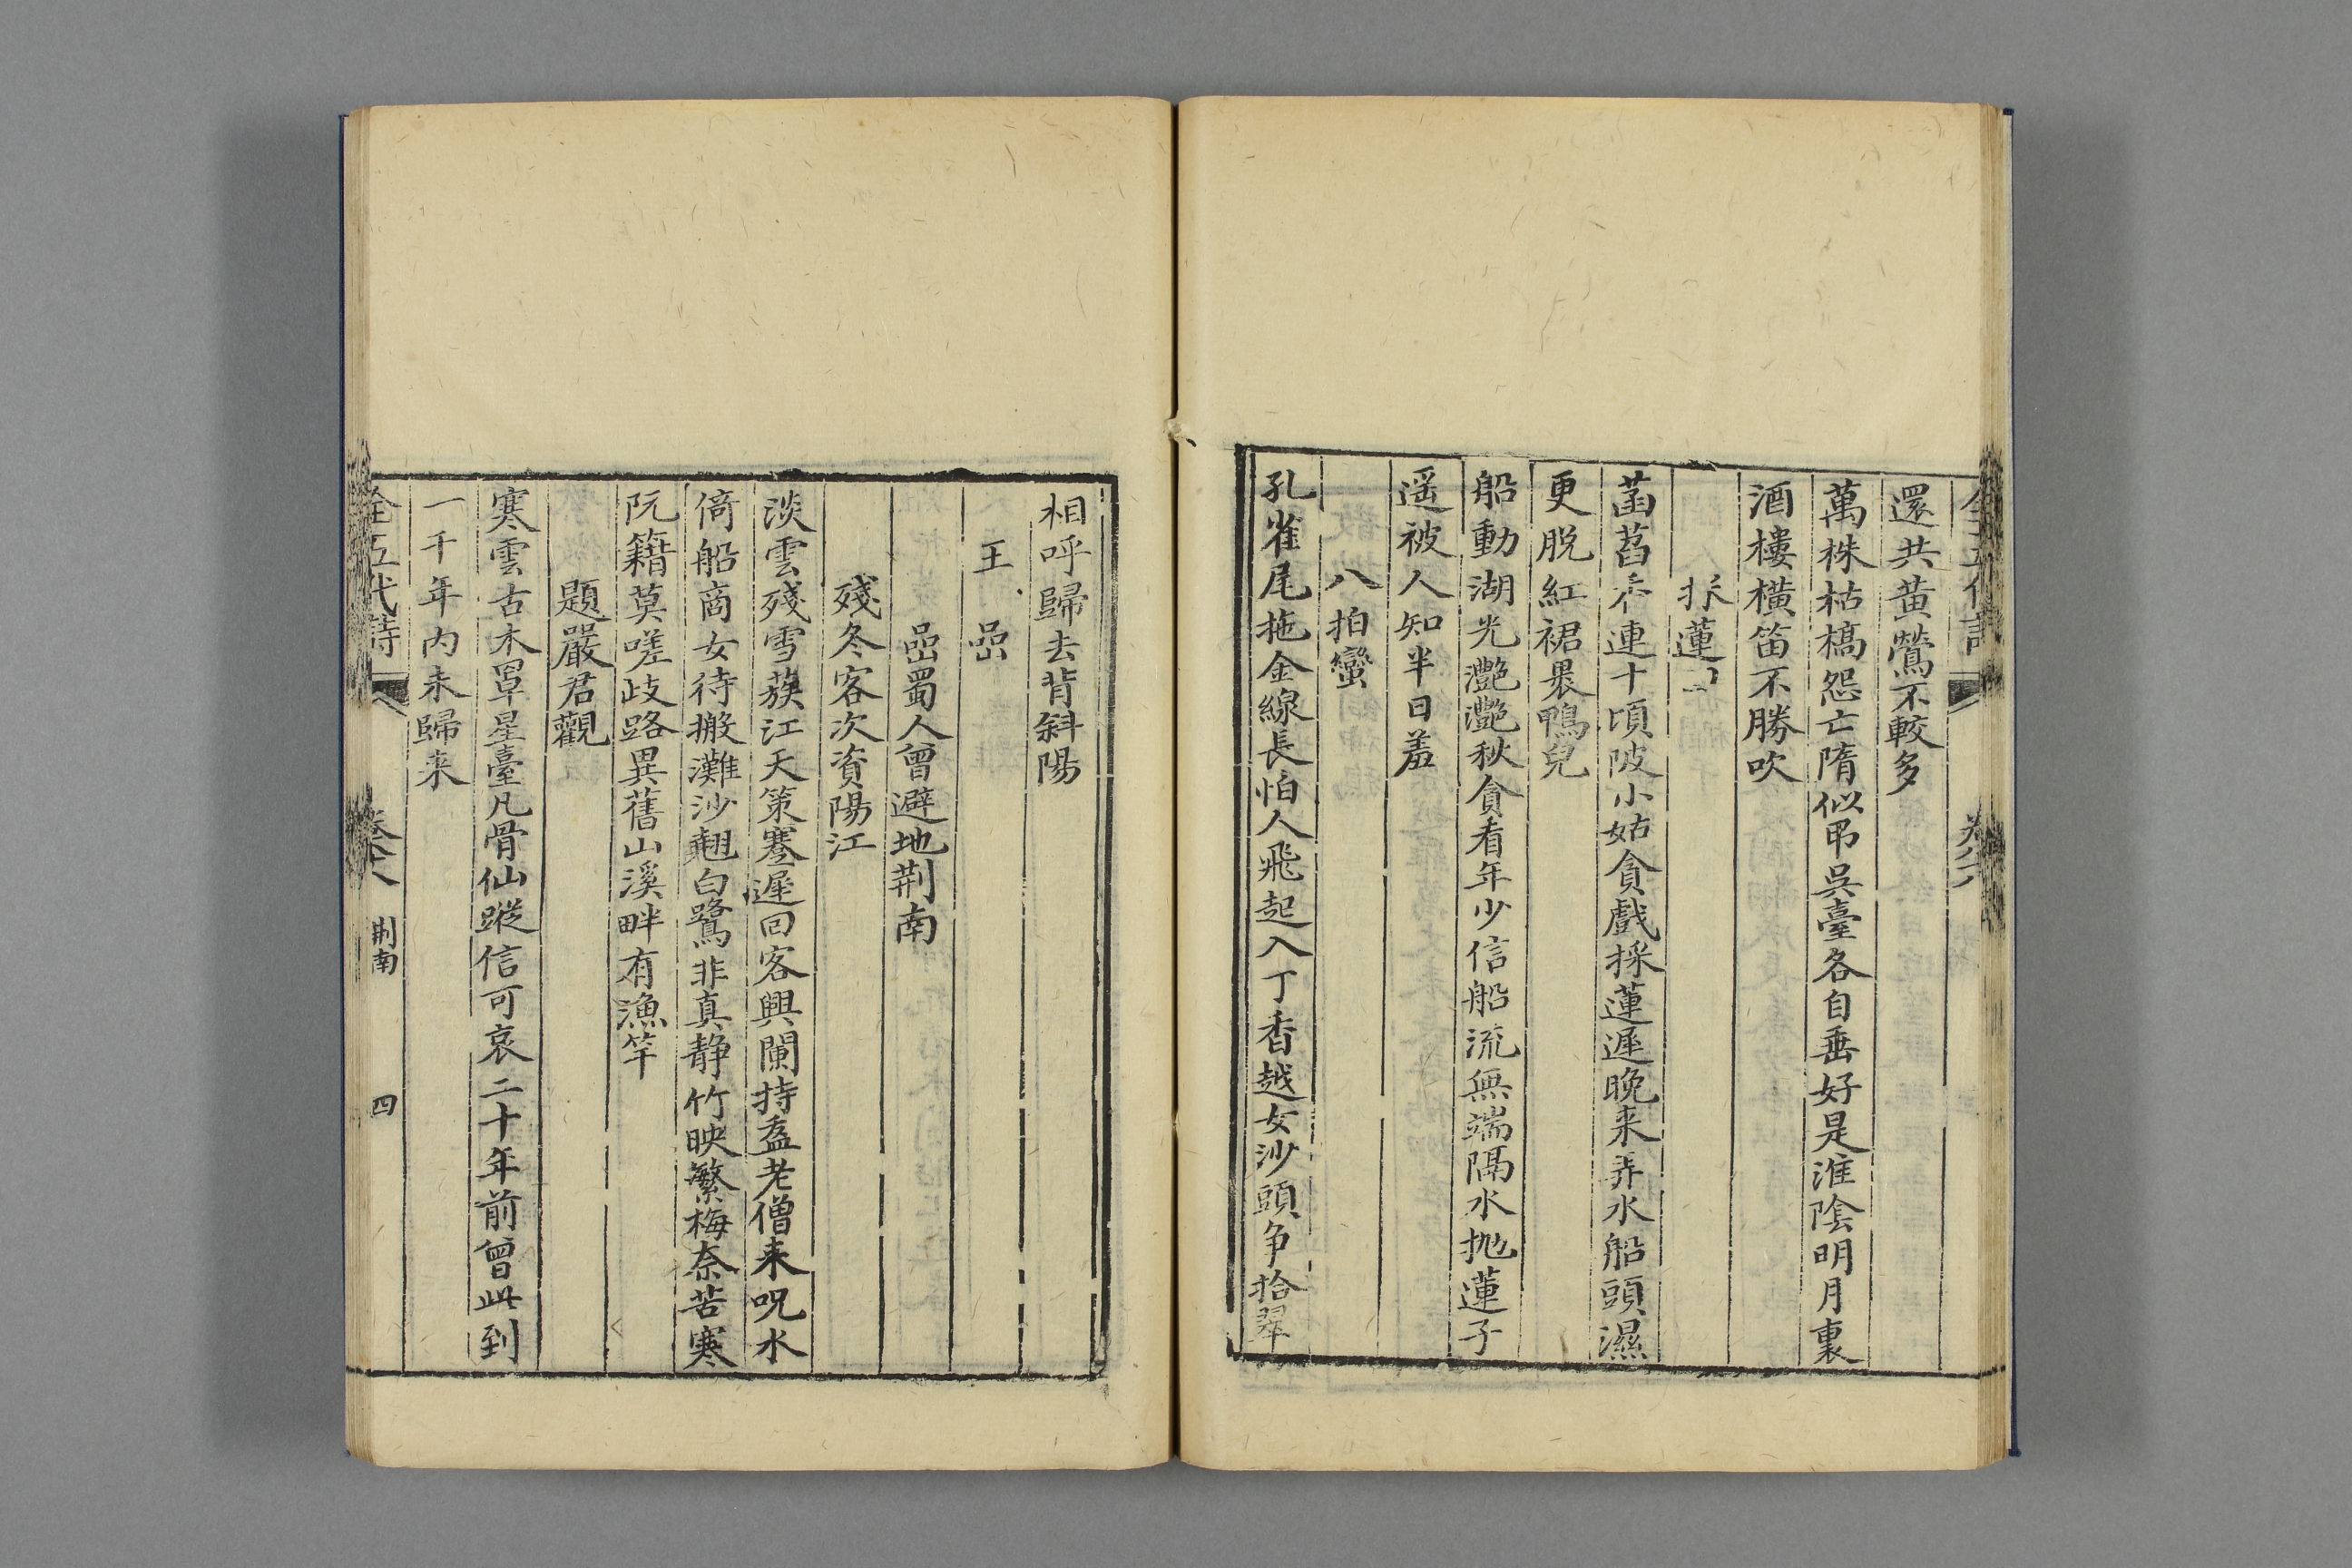 還共黄鶯不較多
萬株枯槁怨亡隋似弔吳臺各自垂好是淮陰明月裏
酒樓橫笛不勝吹
採蓮二
菡萏香連十頃陂小姑貪戲採蓮遲晚来弄水船頭濕
更脱紅裙裹鴨兒
船動湖光灧灧秋貪看年少信船流無端隔水抛蓮子
遥被人知半日羞
八拍蠻
孔雀尾拖金線長怕人飛起入丁香越女沙頭争拾翠
相呼歸去背斜陽
王嵒
嵒蜀人曾避地荆南
殘冬客次資陽江
淡雲殘雪蔟江天策蹇遲回客興闌持盋老僧来呪水
倚船商女待搬灘沙翹白鷺非真静竹映繁梅奈苦寒
阮籍莫嗟歧路異舊山溪畔有漁竿
題嚴君觀
寒雲古木罩星臺凡骨仙蹤信可哀二十年前曾此到
一千年内未歸来
全五代詩 卷六八 荆南 四